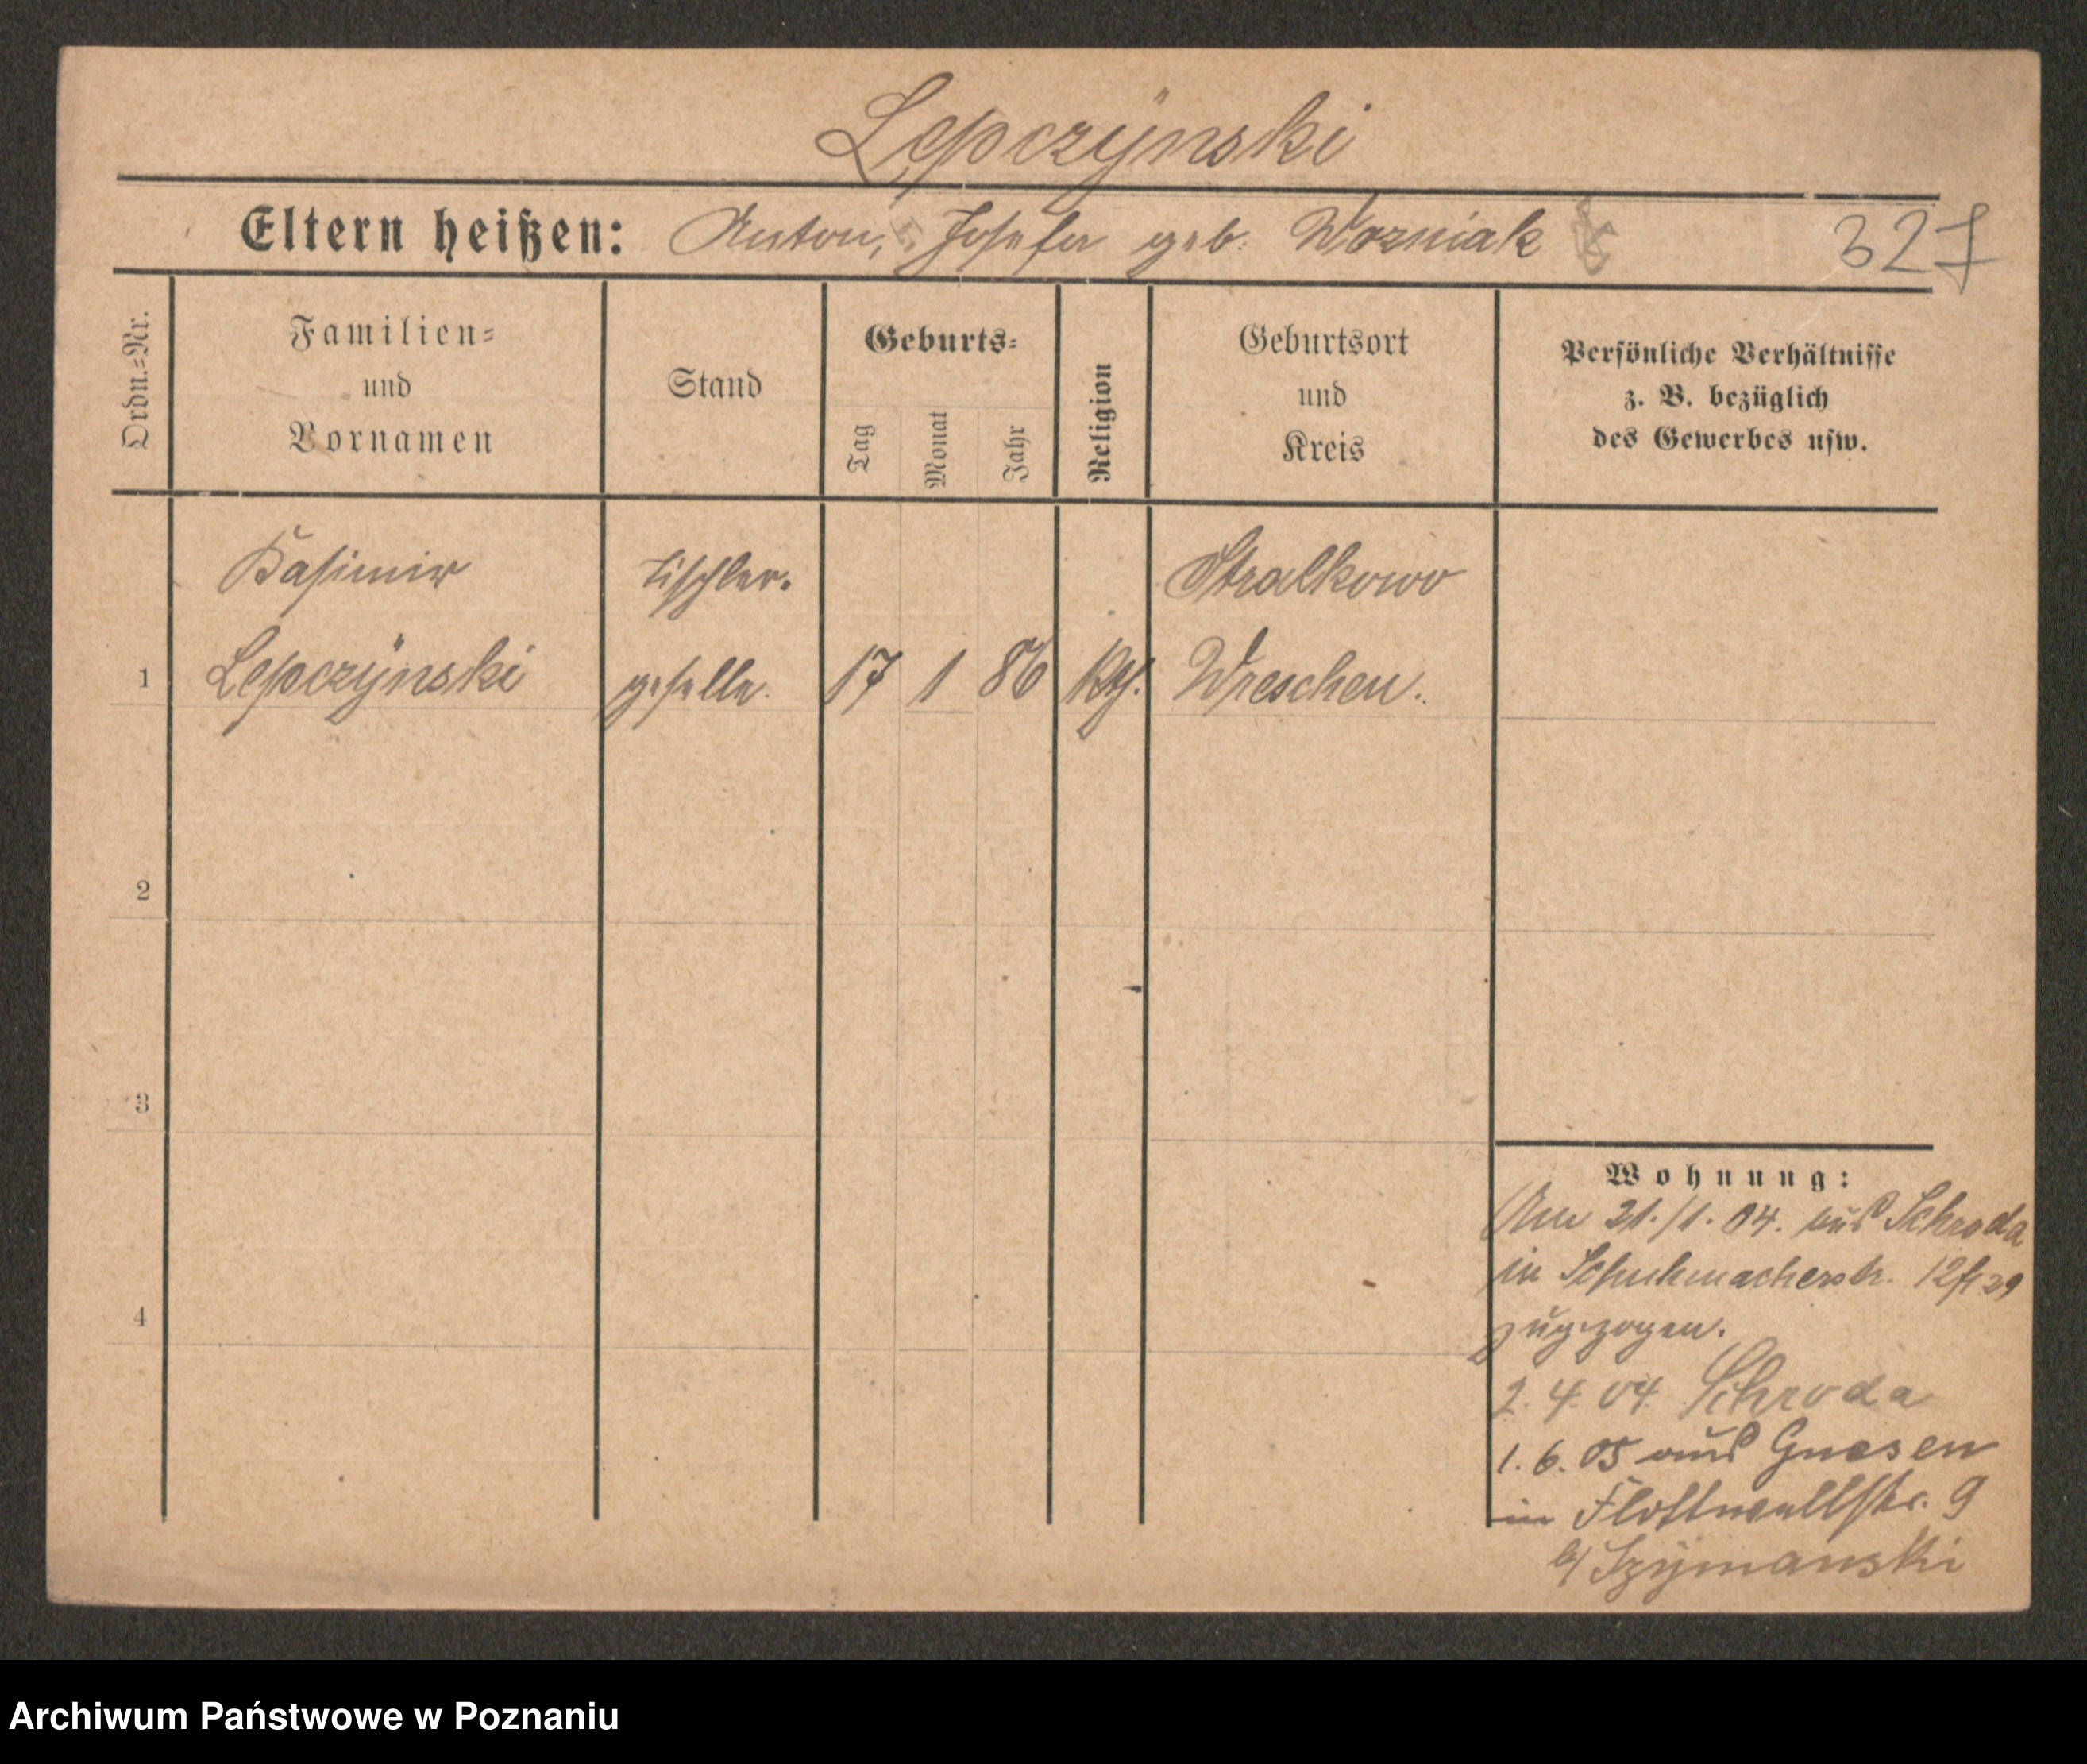 Lepczÿnski
Eltern heißen: Anton, Josefa geb. Wozniak
327
Ordn.=Nr.
Familien=
und
Vornamen
Stand
Geburts=
Tag
Monat
Jahr
Religion
Geburtsort
und
Kreis
Persönliche Verhältnisse
z. B. bezüglich
des Gewerbes usw.
Kasimir Tischler. Stralkowo
1 Lepczÿnski geselle. 17 1 86 kth. Wreschen.
2
3
4
Wohnung:
Am 21./1. 04. aus Schroda
in Schuhmacherstr. 12
zugezogen.
2. 4. 04 Schroda
1. 6. 05 aus Gnesen
in Flottwellstr. 9
b/ Szÿmanski
Archiwum Państwowe w Poznaniu